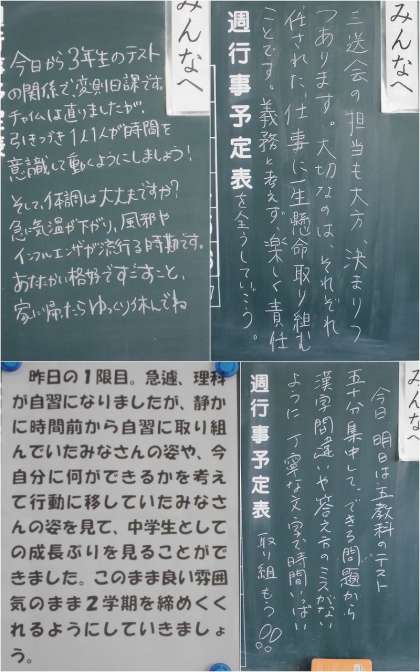 みんなへ
今日から3年生のテスト
の関係で、変則日課です。
チャイムは直りましたが、
引きつづき1人1人が時間を
意識して動くようにしましょう!
そして、体調は大丈夫ですか?
急に気温が下がり、風邪や
インフルエンザが流行る時期です。
あたたかい格好ですごすこと、
家に帰たらゆっくり休んでね
みんなへ
三送会の担当も大方、決まりつ
つあります。大切なのは、それぞれ
任された仕事に一生懸命取り組む
ことです。義務と考えず、楽しく責任
を全うしていこう。
週行事予定表
昨日の1限目。急遽、理科
が自習になりましたが、静か
に時間前から自習に取り組
んでいたみなさんの姿や、今
自分に何ができるかを考え
て行動に移していたみなさ
んの姿を見て、中学生として
の成長ぶりを見ることがで
きました。このまま良い雰囲
気のまま2学期を締めくく
れるようにしていきましょ
う。
みんなへ
今日、明日は五教科のテスト
五十分集中して、できる問題から
漢字間違いや答え方のミスがない
ように丁寧な文字で時間いっぱい
取り組もう
週行事予定表